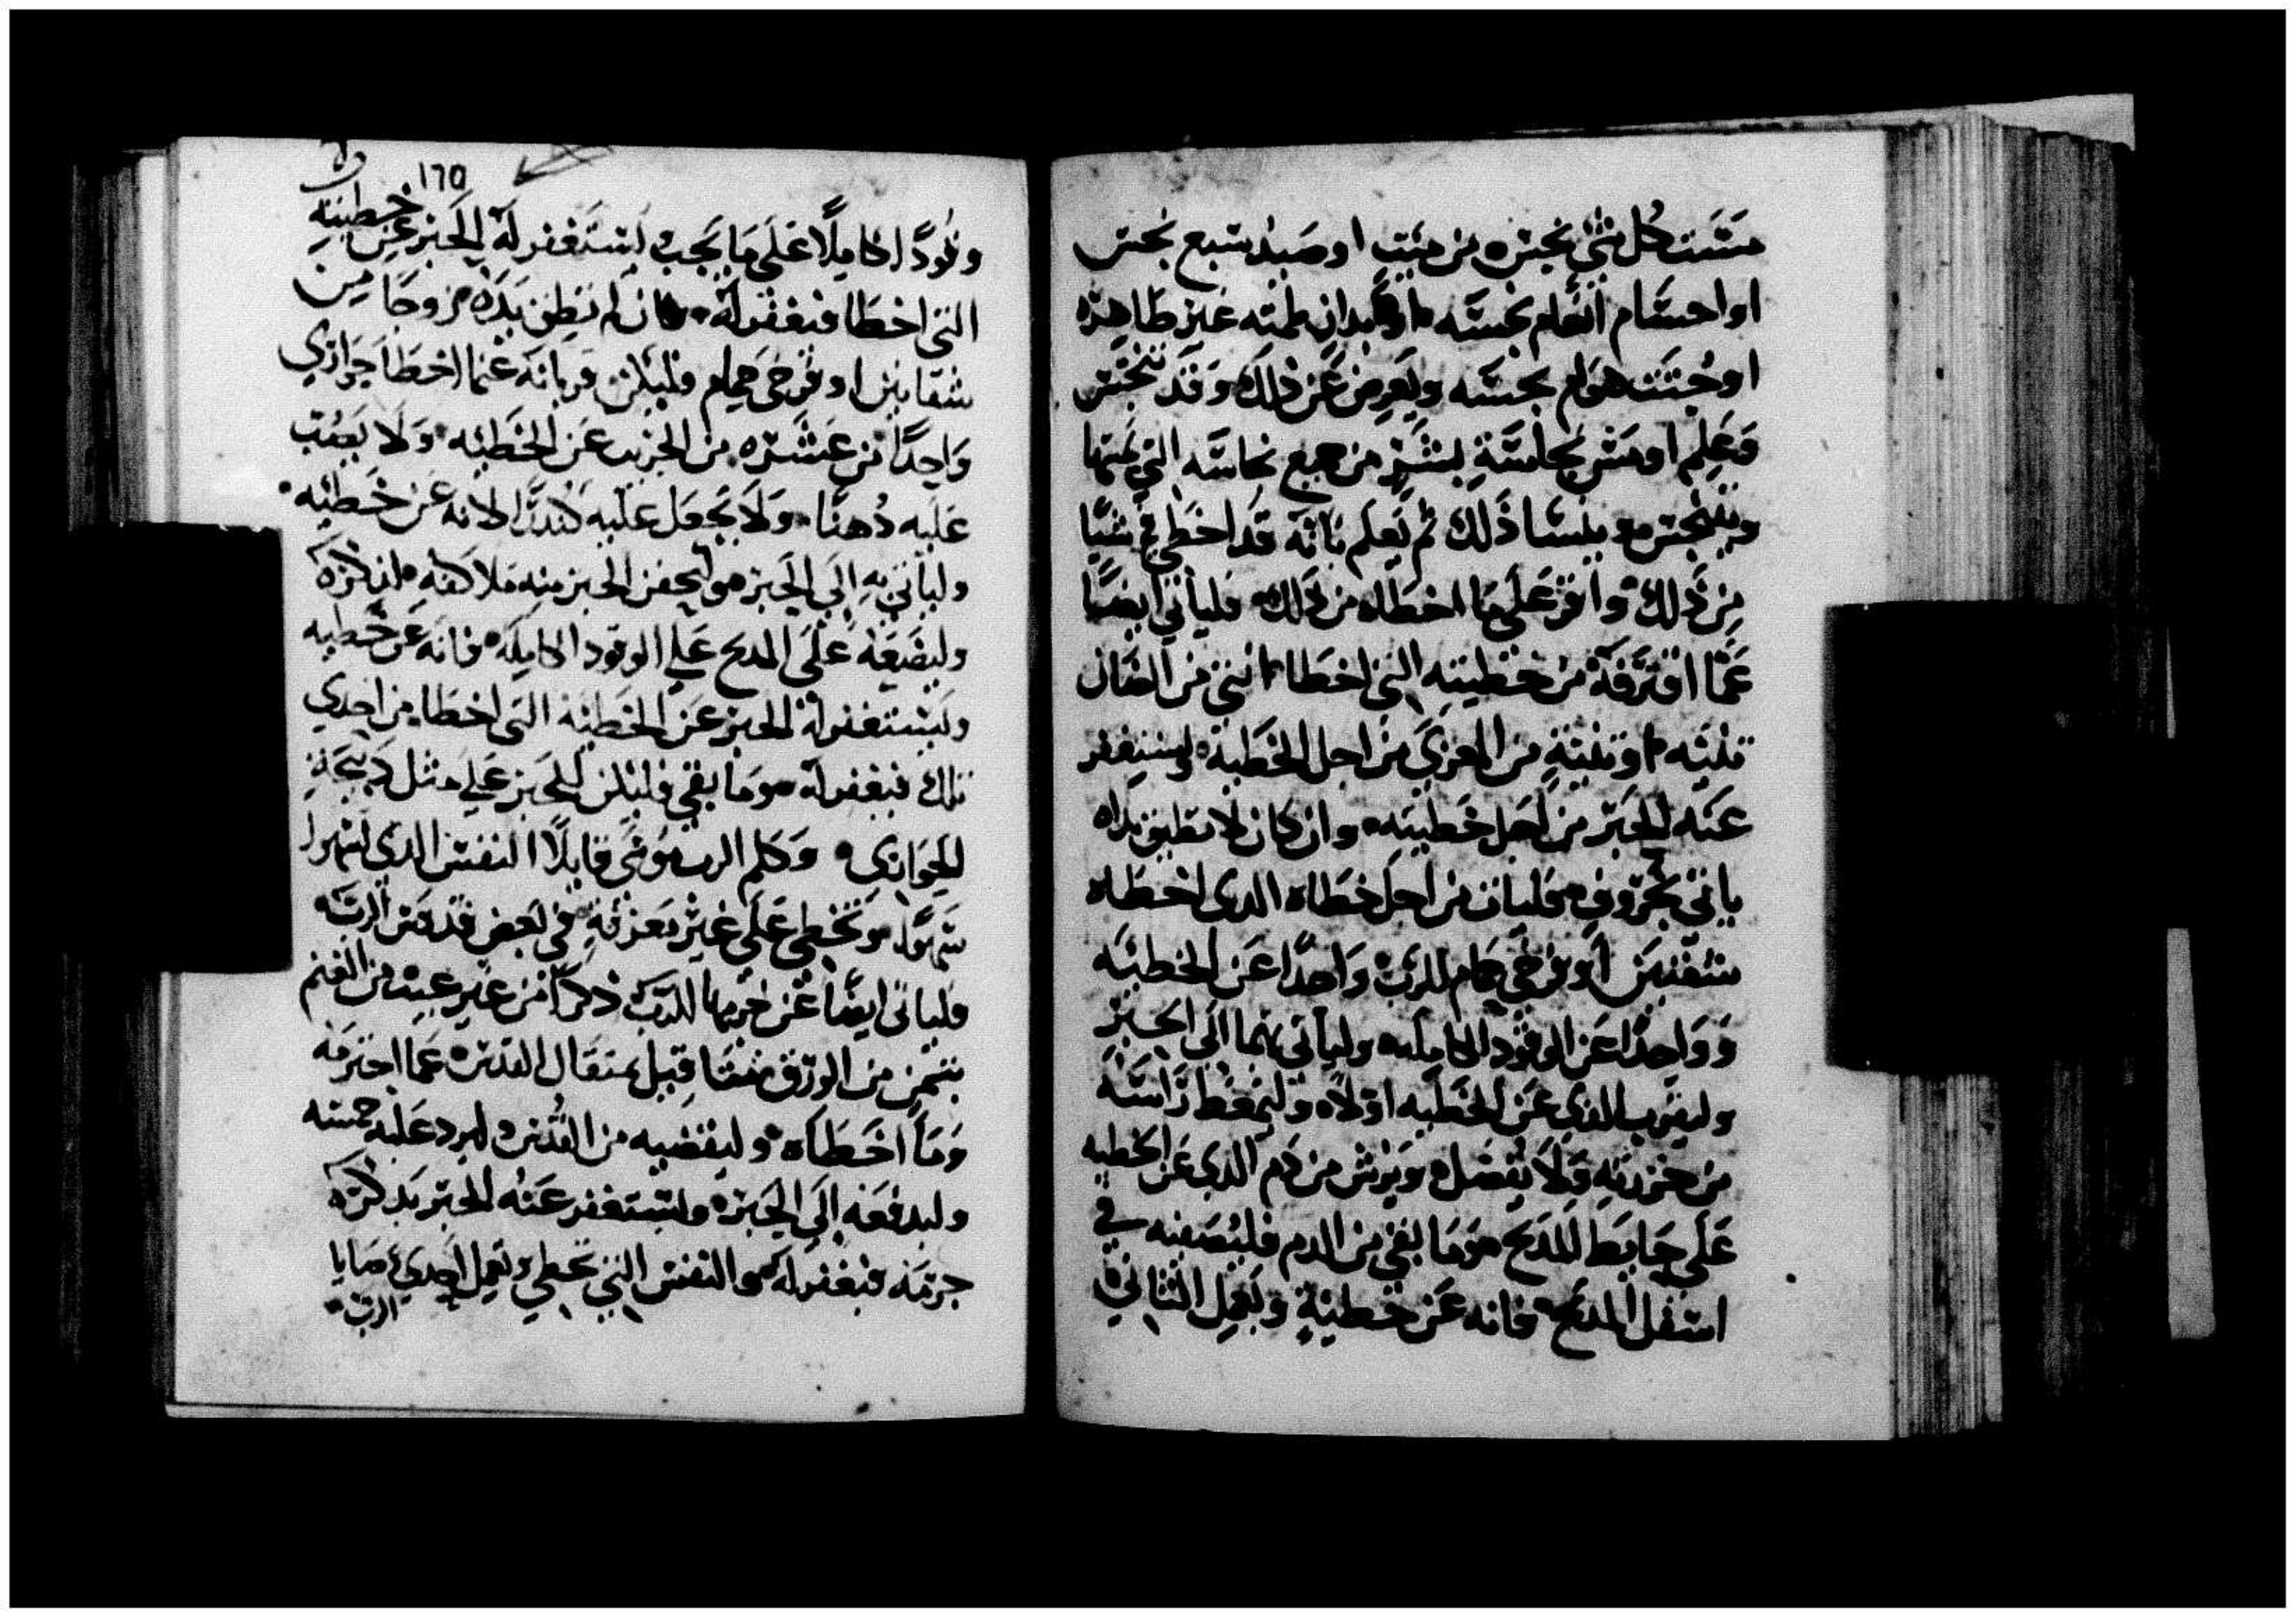 مسّت كل شي نجس من ميّت او صيد سبع نجس
او احسام انعام نجسّه او ابدان طمته غير طاهره
او جتت هوام نجسّه ويعرض عن ذلك وقد تنجس
وعلم او مس نجاسة بشر من جميع نجاسّه التي لمسها
ويتنجس وينسا ذلك ثم يعلم بانه قد اخطى في شيًا
من ذلك واقر على ما اخطاه من ذلك فلياتي ايضًا
عمّا اقترفه من خطيته التي اخطا انتى من الضان
تنيّه او تنيّة من المعزى من اجل الخطية وليستغفر
عنه الحبر من اجل خطيته وان كان لا تطيق يداه
ياتي بخروف فليات من اجل خطاه الدى اخطاه
شفنين او فرخي حمام للرب واحدًا عن الخطيّه
وواحدًا عن الوقود الكامله ولياتي بهما الى الحبر
وليقرب الدى عن الخطيه اولاً وليمغط راسّه
من خرزته ولا يفصل ويرش من دم الدي عن الخطيه
على حايط المدبح وما بقي من الدم فليصفيه في
اسفل المدبح فانه عن خطيّة ويعمل الثاني
١٦٥
وقودًا كاملاً على ما يجب ليستغفر له الحبر عن خطيته
التي اخطا فيغفر له وان لم تطق يده زوجًا من
شفانين او فرخي حمام فليكن قربانه عما اخطا جوارى
واحدًا من عشره من الجريب عن الخطيّه ولا يصُب
عليه دُهنًا ولا يجعل عليه كندرًا لانه عن خطيّه
ولياتي به الى الحبر وليحفن الحبر منه ملا كفه اذ كره
وليضعه على المدبح على الوقود الكامله فانه عن خطيه
وليستغفر له الحبر عن الخطيّة التى اخطا من احدي
تلك فيغفر له وما بقي فليكن للحبر على مثل دبيحة
الجوارى وكلم الرب موسى قايلاً النفس الدى تسهوا
سهوًا وتخطي على غير معرفة في بعض قدس الربّ
فلياتى ايضًا عن جرمها للرب ذكرًا من غير عيب من الغنم
بثمن من الورق مثقا قيل بمثقال القدس عما اجترمه
وما اخطاه وليقضيه من القدس وليرد عليه خمسه
وليدفعه الى الحبر وليستغفر عنه الحبر بدكره
جرمه فيغفر له والنفس التي تخطي وتعمل احدي وصايا
الرب